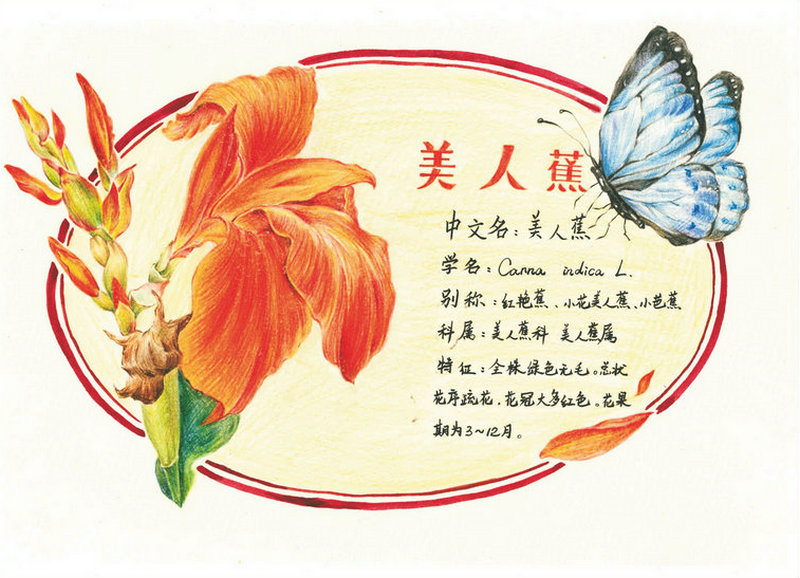 美人蕉
中文名：美人蕉
学名：Canna indica L.
别称：红艳蕉、小花美人蕉、小芭蕉
科属：美人蕉科 美人蕉属
特征：全株绿色无毛。总状
花序疏花，花冠大多红色。花果
期为3~12月。